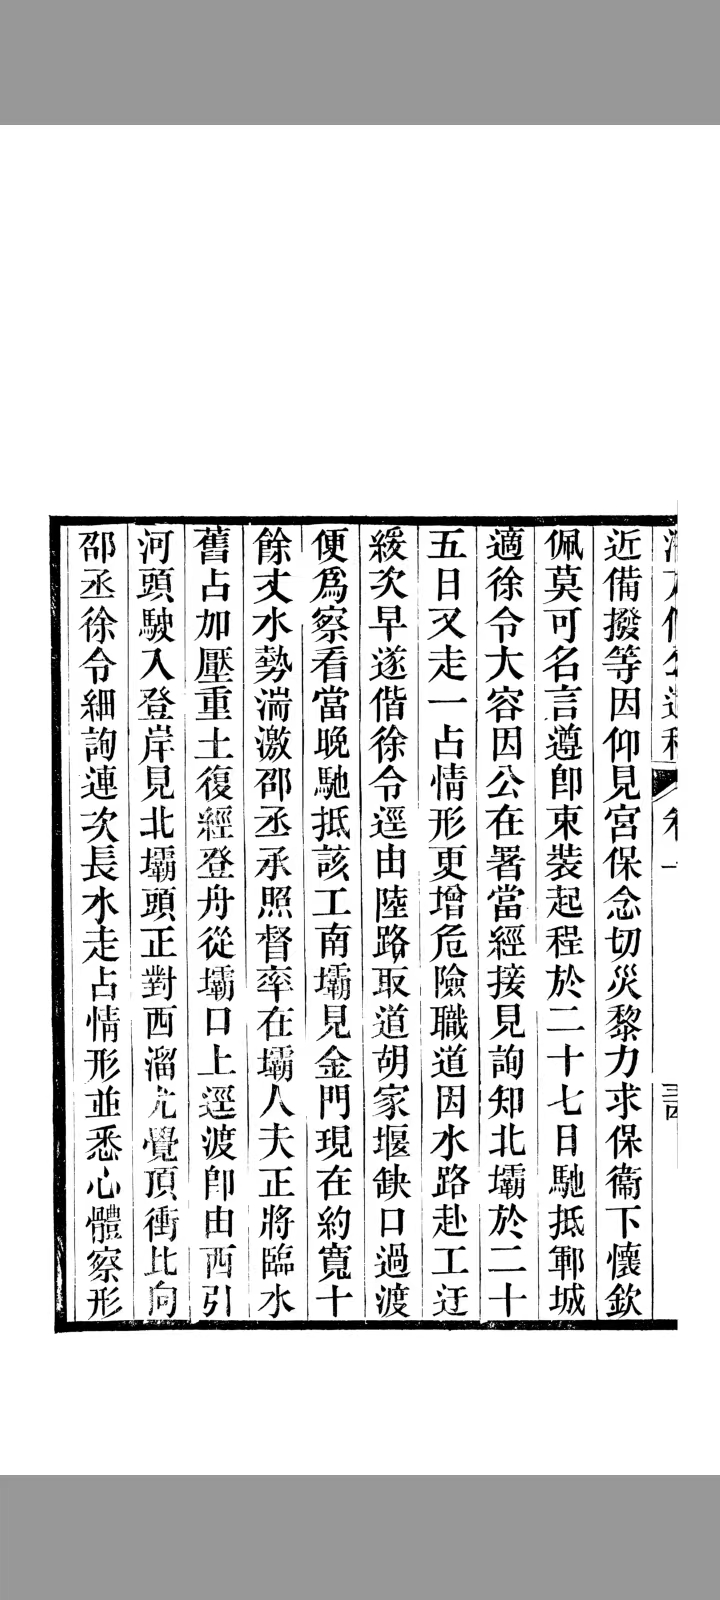 卷一
近備撥等因仰見宮保念切災黎力求保衞下懷欽
佩莫可名言遵卽束裝起程於二十七日馳抵鄆城
適徐令大容因公在署當經接見詢知北壩於二十
五日又走一占情形更增危險職道因水路赴工迂
緩次早遂偕徐令逕由陸路取道胡家堰缺口過渡
便爲察看當晚馳抵該工南壩見金門現在約寬十
餘丈水勢湍激邵丞承照督率在壩人夫正將臨水
舊占加壓重土復經登舟從壩口上逕渡卽由西引
河頭駛入登岸見北壩頭正對西溜尤覺頂衝比向
邵丞徐令細詢連次長水走占情形並悉心體察形